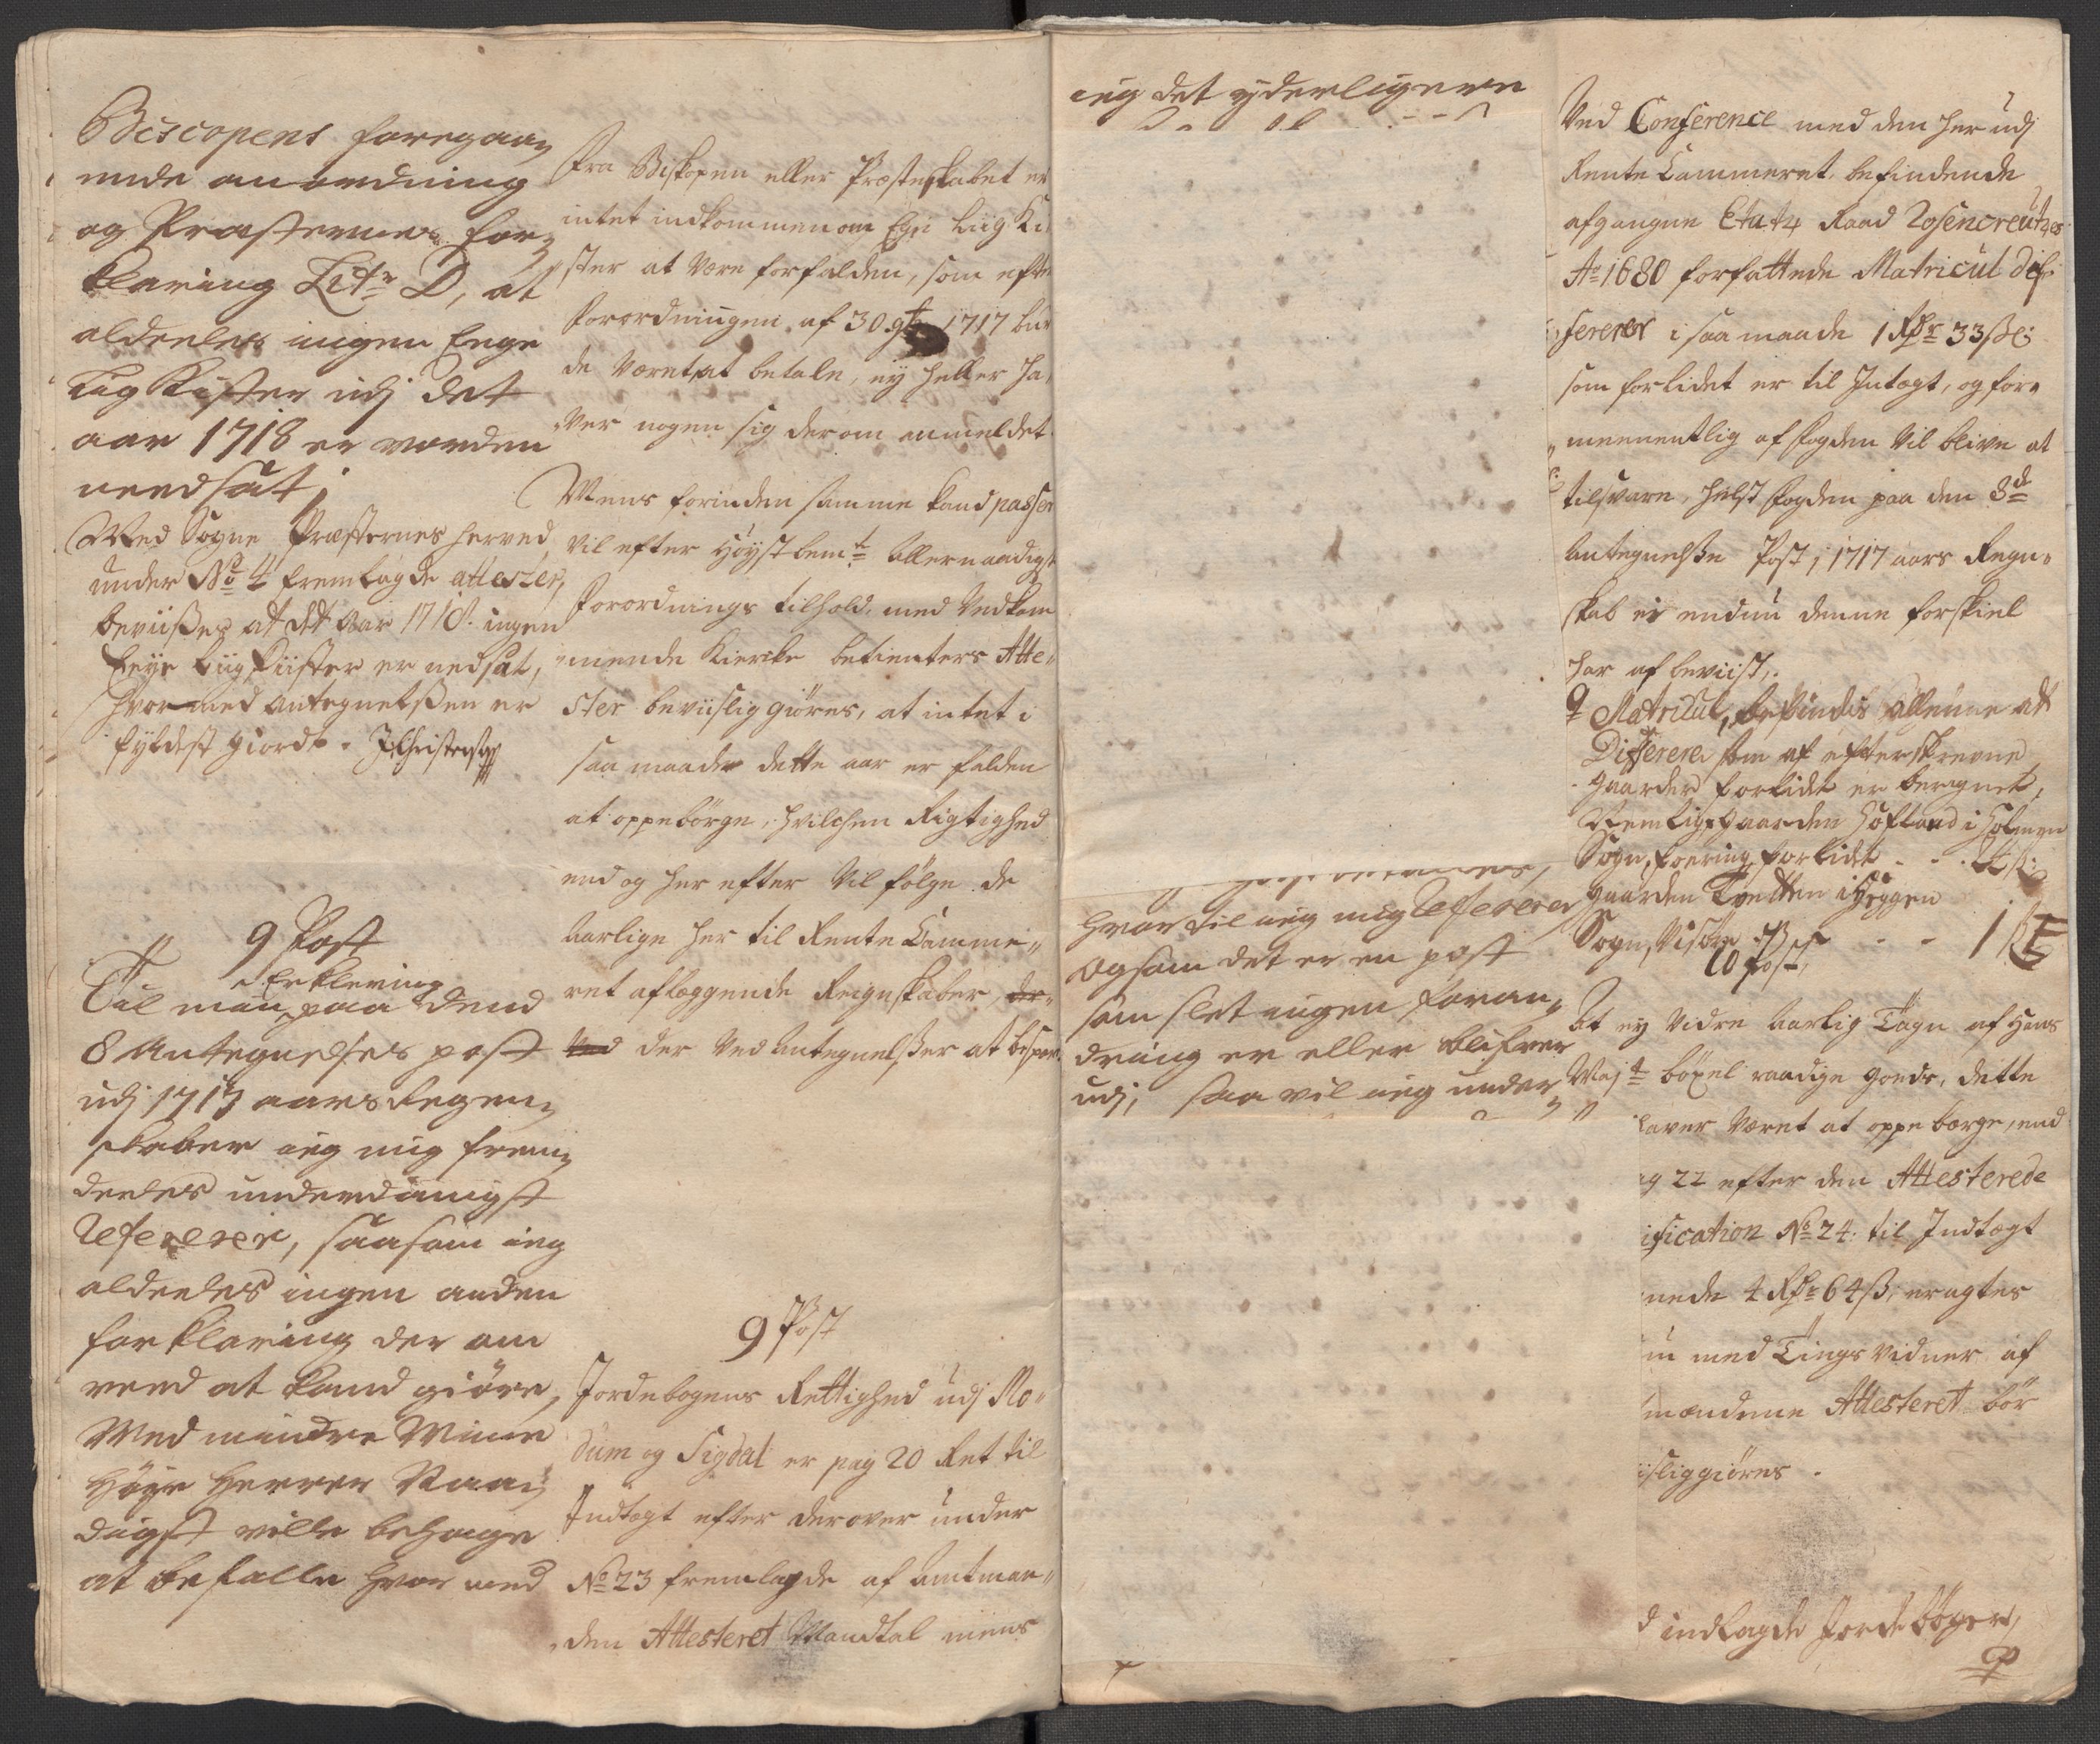 Biscopens foregaa-
ende anordning
og Præsternes for-
klaring Litr D, at
aldeeles ingen Eege
Liig Kister udj det
aar 1718 er worden
needsat;
Med Sogne Præsternes herved
under No 4 fremlagde attester,
beviises at det Aar 1718. ingen
Eege Liig Kiister er nedsat,
hvormed Antegnelsen er
fyldest giordt.
9 Post
Til min Erklering paa dend
8 Antegnelses post
udj 1717 aars Regen-
skaber ieg mig frem-
deeles underdanigst
Refererer, saasom ieg
aldeeles ingen anden
forklaring der om
veed at kand giøre,
Med mindre Mine
Høye Herrer Naa-
digst ville behage
at befalle hvor med
Fra Biskopen eller Præsteskabet er
intet indkommen om Ege Liig Ki-
ster at være forfalden, som efter
Forordningen af 30 1717 bur-
de været at betale, ey heller ha-
ver nogen sig derom anmeldet.
Mens forinden samme kand passer
vil efter Høystbemte Allernaadigst
Forordnings tilhold, med Vedkom-
mende Kiercke betienters Atte-
ster beviislig giøres, at intet i
saa maader dette aar er falden
at oppebørge, hvilchen Rigtighed
end og her efter vil følge de
Aarlige her til Rente Camme-
ret aflæggende Regnskaber,
der ved Antegnelser at bespare.
9 Post
Jordebogens Rettighed udj Mo-
dum og Sigdal er pag 20 Ret til
Indtægt efter derover under
No 23 fremlagde af Amtman-
den Attesteret Mandtal mens
ieg det yderligere
hvortil ieg mig Refererer
og som det er en post
som slet ingen foran-
dring er eller blifver
udj, saa vil ieg under
Ved Conference med den her udj
Rente Cammeret befindende
afgangne Etatz Raad Rosencreutzes
Ao 1680 forfattede Matricul dif-
fererer i saa maade 1 Rdr 33 s.
som forlidet er til Indtægt, og for-
meenentlig af Fogden vil blive at
tilsvare, helst Fogden paa den 8de
Antegnelse Post i 1717 aars Regn-
skab ei endnu denne forskiel
har af beviist,
Matricul, befindis allene at
Differere som af efterskrevne
gaarder forlidt er beregnet,
Nemlig gaarden Hofland i Holmen
Sogn, foering forlidt - - -
gaarden i Heggen
Sogn, - - 1
10 Post,
At ey vidre Aarlig Tage af Hans
Mayts bøxel raadige goeds, dette
aver været at oppe børge, end
ag 22 efter den Attesterede
ification No 24. til Indtægt
nede 4 Rdr 64 s, eragtes
u med Tings vidner af
mændene Attesteret bør
isliggiøres.
d indlagde Jordebøger,